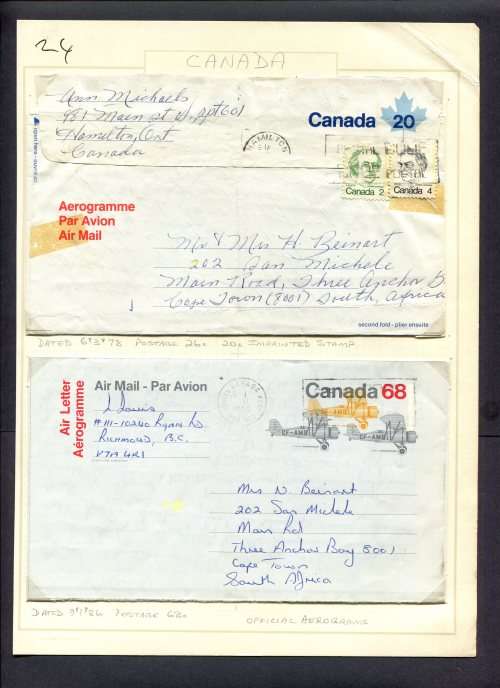 24
CANADA
Ann Michaels
981 Main st W, Apt 601
Hamilton, Ont
Canada
Canada 20
HAMILTON
Canada 2
Canada 4
Aerogramme
Par Avion
Air Mail
Mr & Mrs H. Beinart
202 San Michele
Main Road, Three Anchor B
Cape Town (8001) South, Africa
second fold - plier ensuite
DATED 6*3*78 POSTAGE 26c 20c IMPRINTED STAMP
Air Letter
Aérogramme
Air Mail - Par Avion
Canada 68
L Lewis
#111-10240 Ryan Rd
RICHMOND, B.C.
V7A 4R1
CF-AMB
CF-AMB
CF-AMB
Mrs N. Beinart
202 San Michele
Main Rd
Three Anchor Bay 8001
Cape Town
South Africa
DATED 9*1*86 POSTAGE 68c
OFFICIAL AEROGRAMS